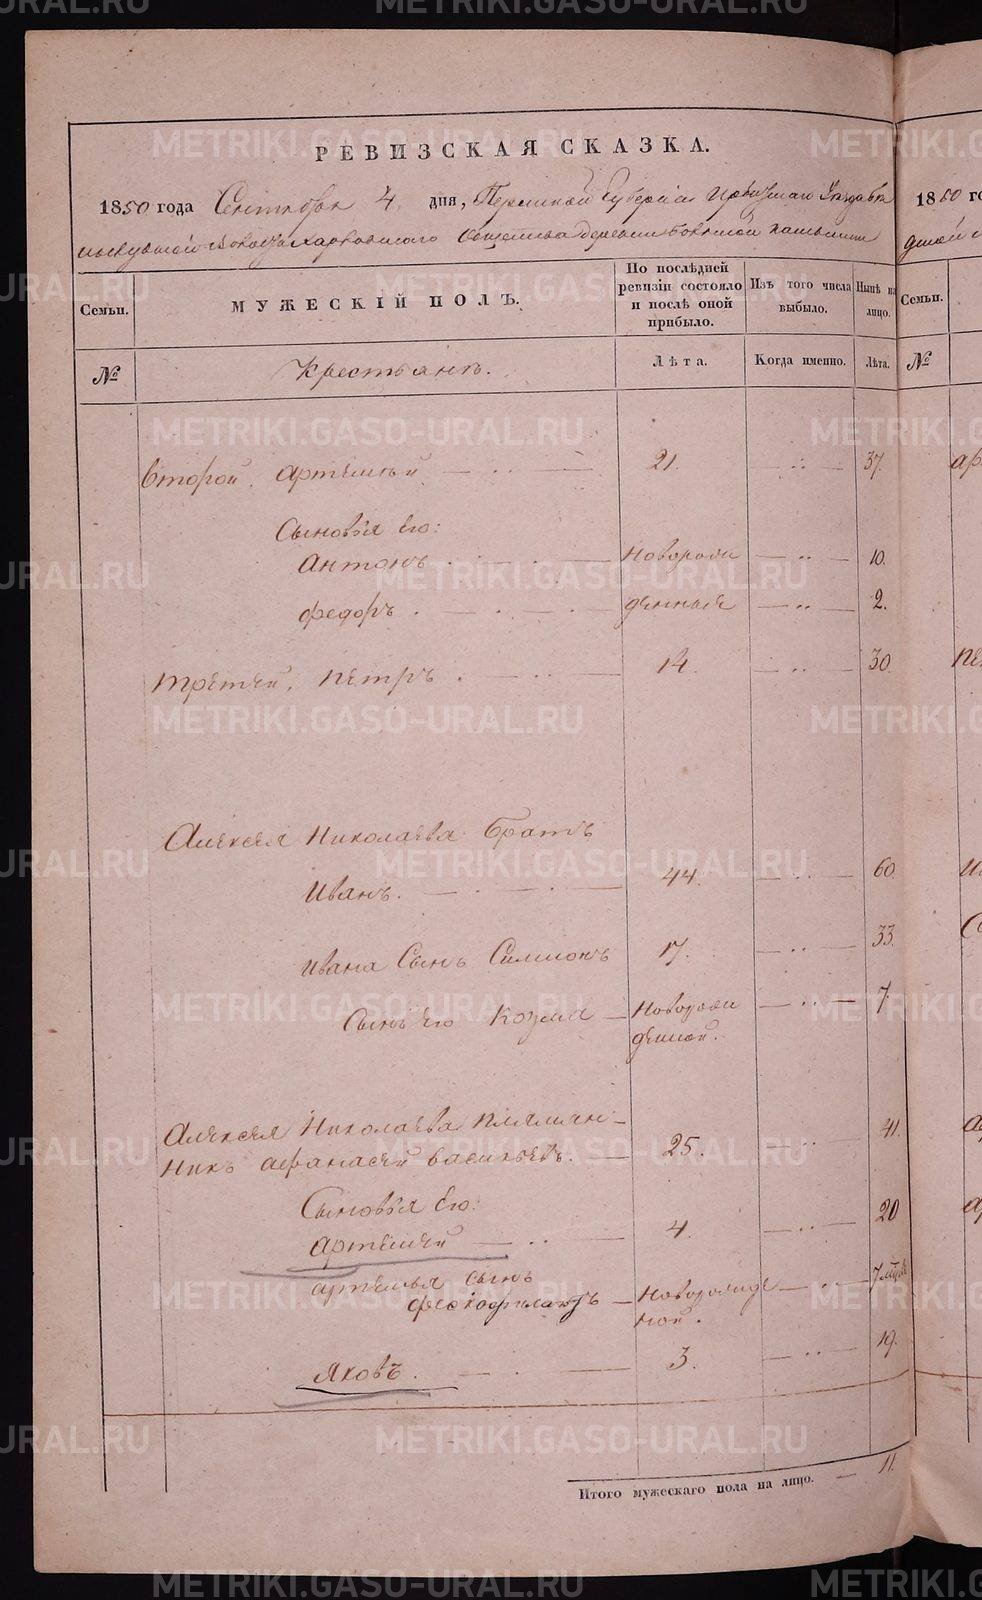 METRIKI.GASO-URAL.RU
РЕВИЗСКАЯ СКАЗКА.
1850 года Сентября 4 дня, Пермской Губернiи Ирбитскаго Уезда
Харловскаго деревни
Семьи.
МУЖЕСКІЙ ПОЛЪ.
По послѣдней ревизіи состояло и послѣ оной прибыло.
Изъ того числа выбыло.
Нынѣ на лицо.
Семьи.
№
Крестьянъ.
Лѣта.
Когда именно.
Лѣта.
№
Второй. Артемей 21. 37.
Сыновья его:
Антонъ новорож 10.
Федоръ денныя 2.
Третей. Петръ 14. 30.
Алексея Николаева братъ
Иванъ. 44. 60.
Ивана сынъ Симионъ 17. 33.
Сынъ его Козма Новорож 7.
денной.
Алексея Николаева племян-
никъ Афанасей Васильевъ. 25. 41.
Сыновья его:
Артемей 4. 20
Артемья сынъ
Феокофилактъ Новорожде
ной.
Яковъ. 3. 19.
Итого мужескаго пола на лицо. 11.